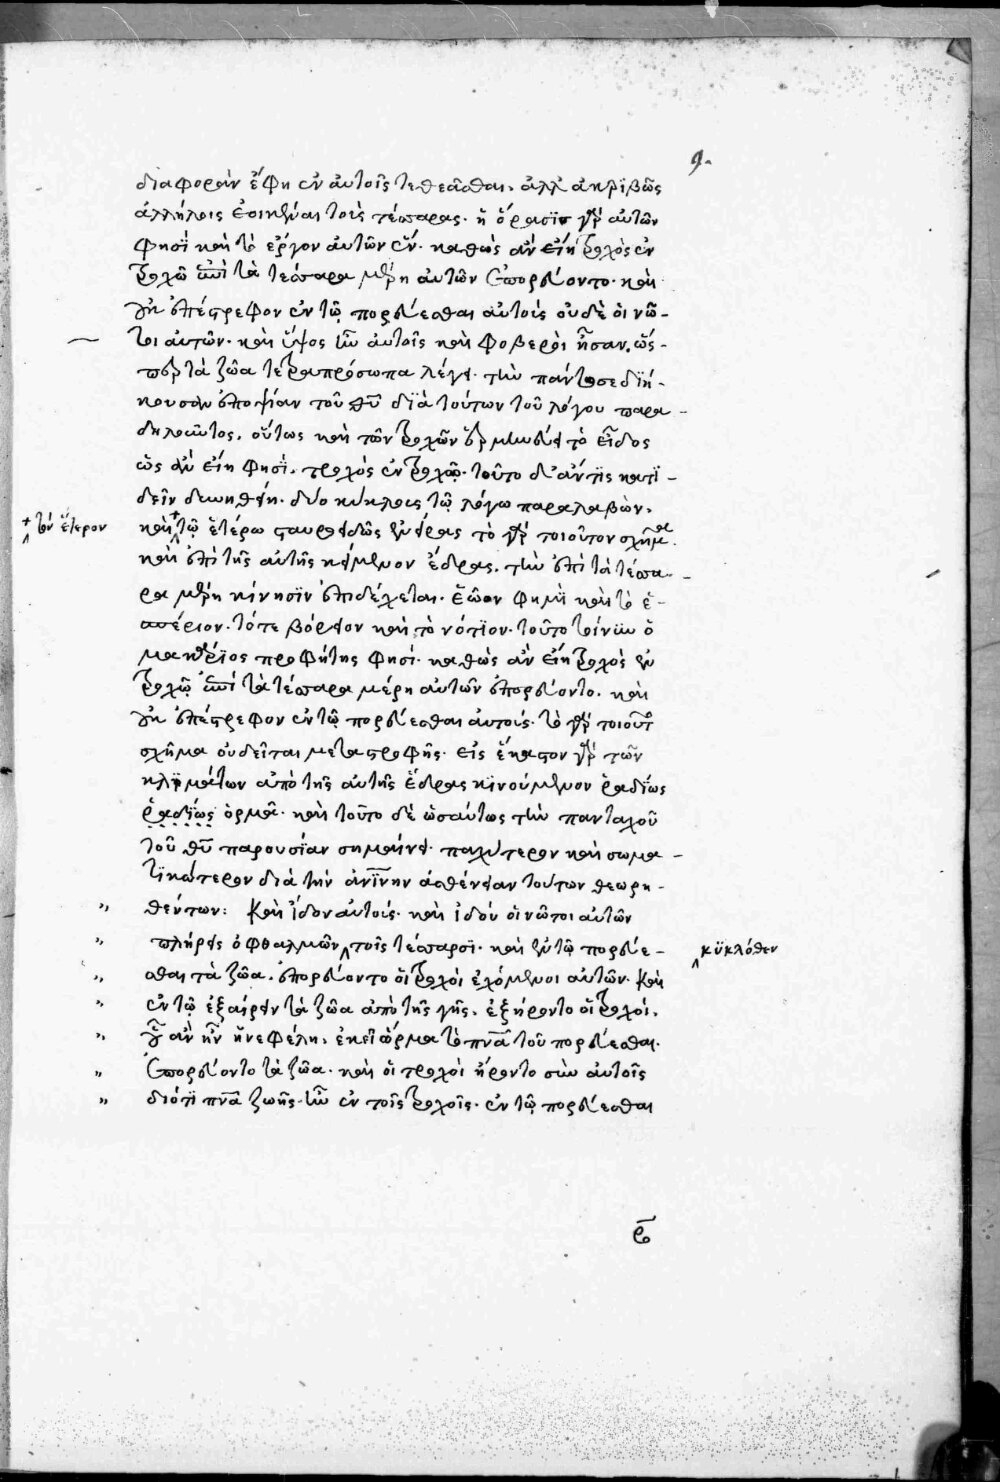 9.
διαφορὰν ἔφη ἐν αὐτοῖς τεθεᾶσθαι. ἀλλ' ἀκριβῶς
ἀλλήλοις ἐοικέναι τοὺς τέσσαρας. ἡ ὅρασϊς γὰρ αὐτῶν
φησὶ καὶ τὸ ἔργον αὐτῶν ἕν. καθὼς ἂν εἴη τροχὸς ἐν
τροχῶ ἐπὶ τὰ τέσσαρα μέρη αὐτῶν ἐπορεύοντο. καὶ
οὐκ ἐπέστρεφον ἐν τῷ πορεύεσθαι αὐτούς οὐδὲ οἱ νῶ-
τοι αὐτῶν. καὶ ὕψος ἦν αὐτοῖς καὶ φοβεροὶ ἦσαν. ὥσ-
περ τὰ ζῶα τετραπρόσωπα λέγει. τὴν πάντοσε διή-
κουσαν ἐποψίαν τοῦ θῦ διὰ τούτων τοῦ λόγου παρα-
δηλοῦντος. οὕτως καὶ τῶν τροχῶν ἑρμηνεύει τὸ εἶδος
ὡς ἂν εἴη φησὶ. τροχὸς ἐν τροχῷ. τοῦτο δ' ἄν τις κατϊ-
δεῖν δυνηθείη. δύο κύκλους τῷ λόγω παραλαβὼν.
+ τὸν ἕτερον
καὶ + τῷ ἑτέρω σταυροειδῶς ἐνείρας τὸ γὰρ τοιοῦτον σχῆμα.
καὶ ἐπὶ τῆς αὐτῆς κείμενον ἕδρας. τὴν ἐπὶ τὰ τέσσα-
ρα μέρη κίνησϊν ἐπιδέχεται. ἑῶον φημὶ καὶ τὸ ἑ-
σπέριον. τότε βόρειον καὶ τὸ νότϊον. τοῦτο τοίνυν ὁ
μακάριος προφήτης φησί. καθὼς ἂν εἴη τροχὸς ἐν
τροχῷ ἐπὶ τὰ τέσσαρα μέρη αὐτῶν ἐπορεύοντο. καὶ
οὐκ ἐπέστρεφον ἐν τῷ πορεύεσθαι αὐτούς. τὸ γὰρ τοιοῦτο
σχῆμα οὐ δεῖται μεταστροφῆς. εἰς ἕκαστον γὰρ τῶν
κλϊμάτων ἀπὸ τῆς αὐτῆς ἕδρας κϊνούμενον ῥαδίως
ῥαδίως ὁρμᾶ. καὶ τοῦτο δὲ ὡσαύτως τὴν πανταχοῦ
τοῦ θῦ παρουσίαν σημαίνει. παχύτερον καὶ σωμα-
τϊκώτερον διὰ τὴν ἀνίνην ἀσθένειαν τούτων θεωρη-
" θέντων: Καὶ ἴδον αὐτούς. καὶ ἰδοὺ οἱ νῶτοι αὐτῶν
" πλήρεις ὀφθαλμῶν τοῖς τέσσαρσϊ. καὶ ἐν τῷ πορεύε-
κϋκλόθεν
" σθαι τὰ ζῶα. ἐπορεύοντο οἱ τροχοὶ ἐχόμενοι αὐτῶν. Καὶ
" ἐν τῷ ἐξαίρειν τὰ ζῶα ἀπὸ τῆς γῆς. ἐξήροντο οἱ τροχοί.
" οὗ ἂν ἦν ἡ νεφέλη. ἐκεῖ ὥρμα τὸ πνᾶ τοῦ πορεύεσθαι.
" ἐπορεύοντο τὰ ζῶα. καὶ οἱ τροχοὶ ἤροντο σὺν αὐτοῖς
" διότϊ πνᾶ ζωῆς ἦν ἐν τοῖς τροχοῖς. ἐν τῷ πορεύεσθαι